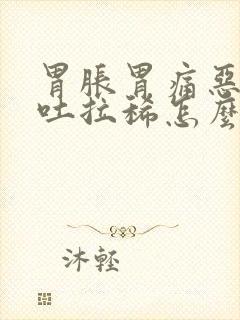 胃脹胃痛惡
吐拉稀怎麼
沐輕